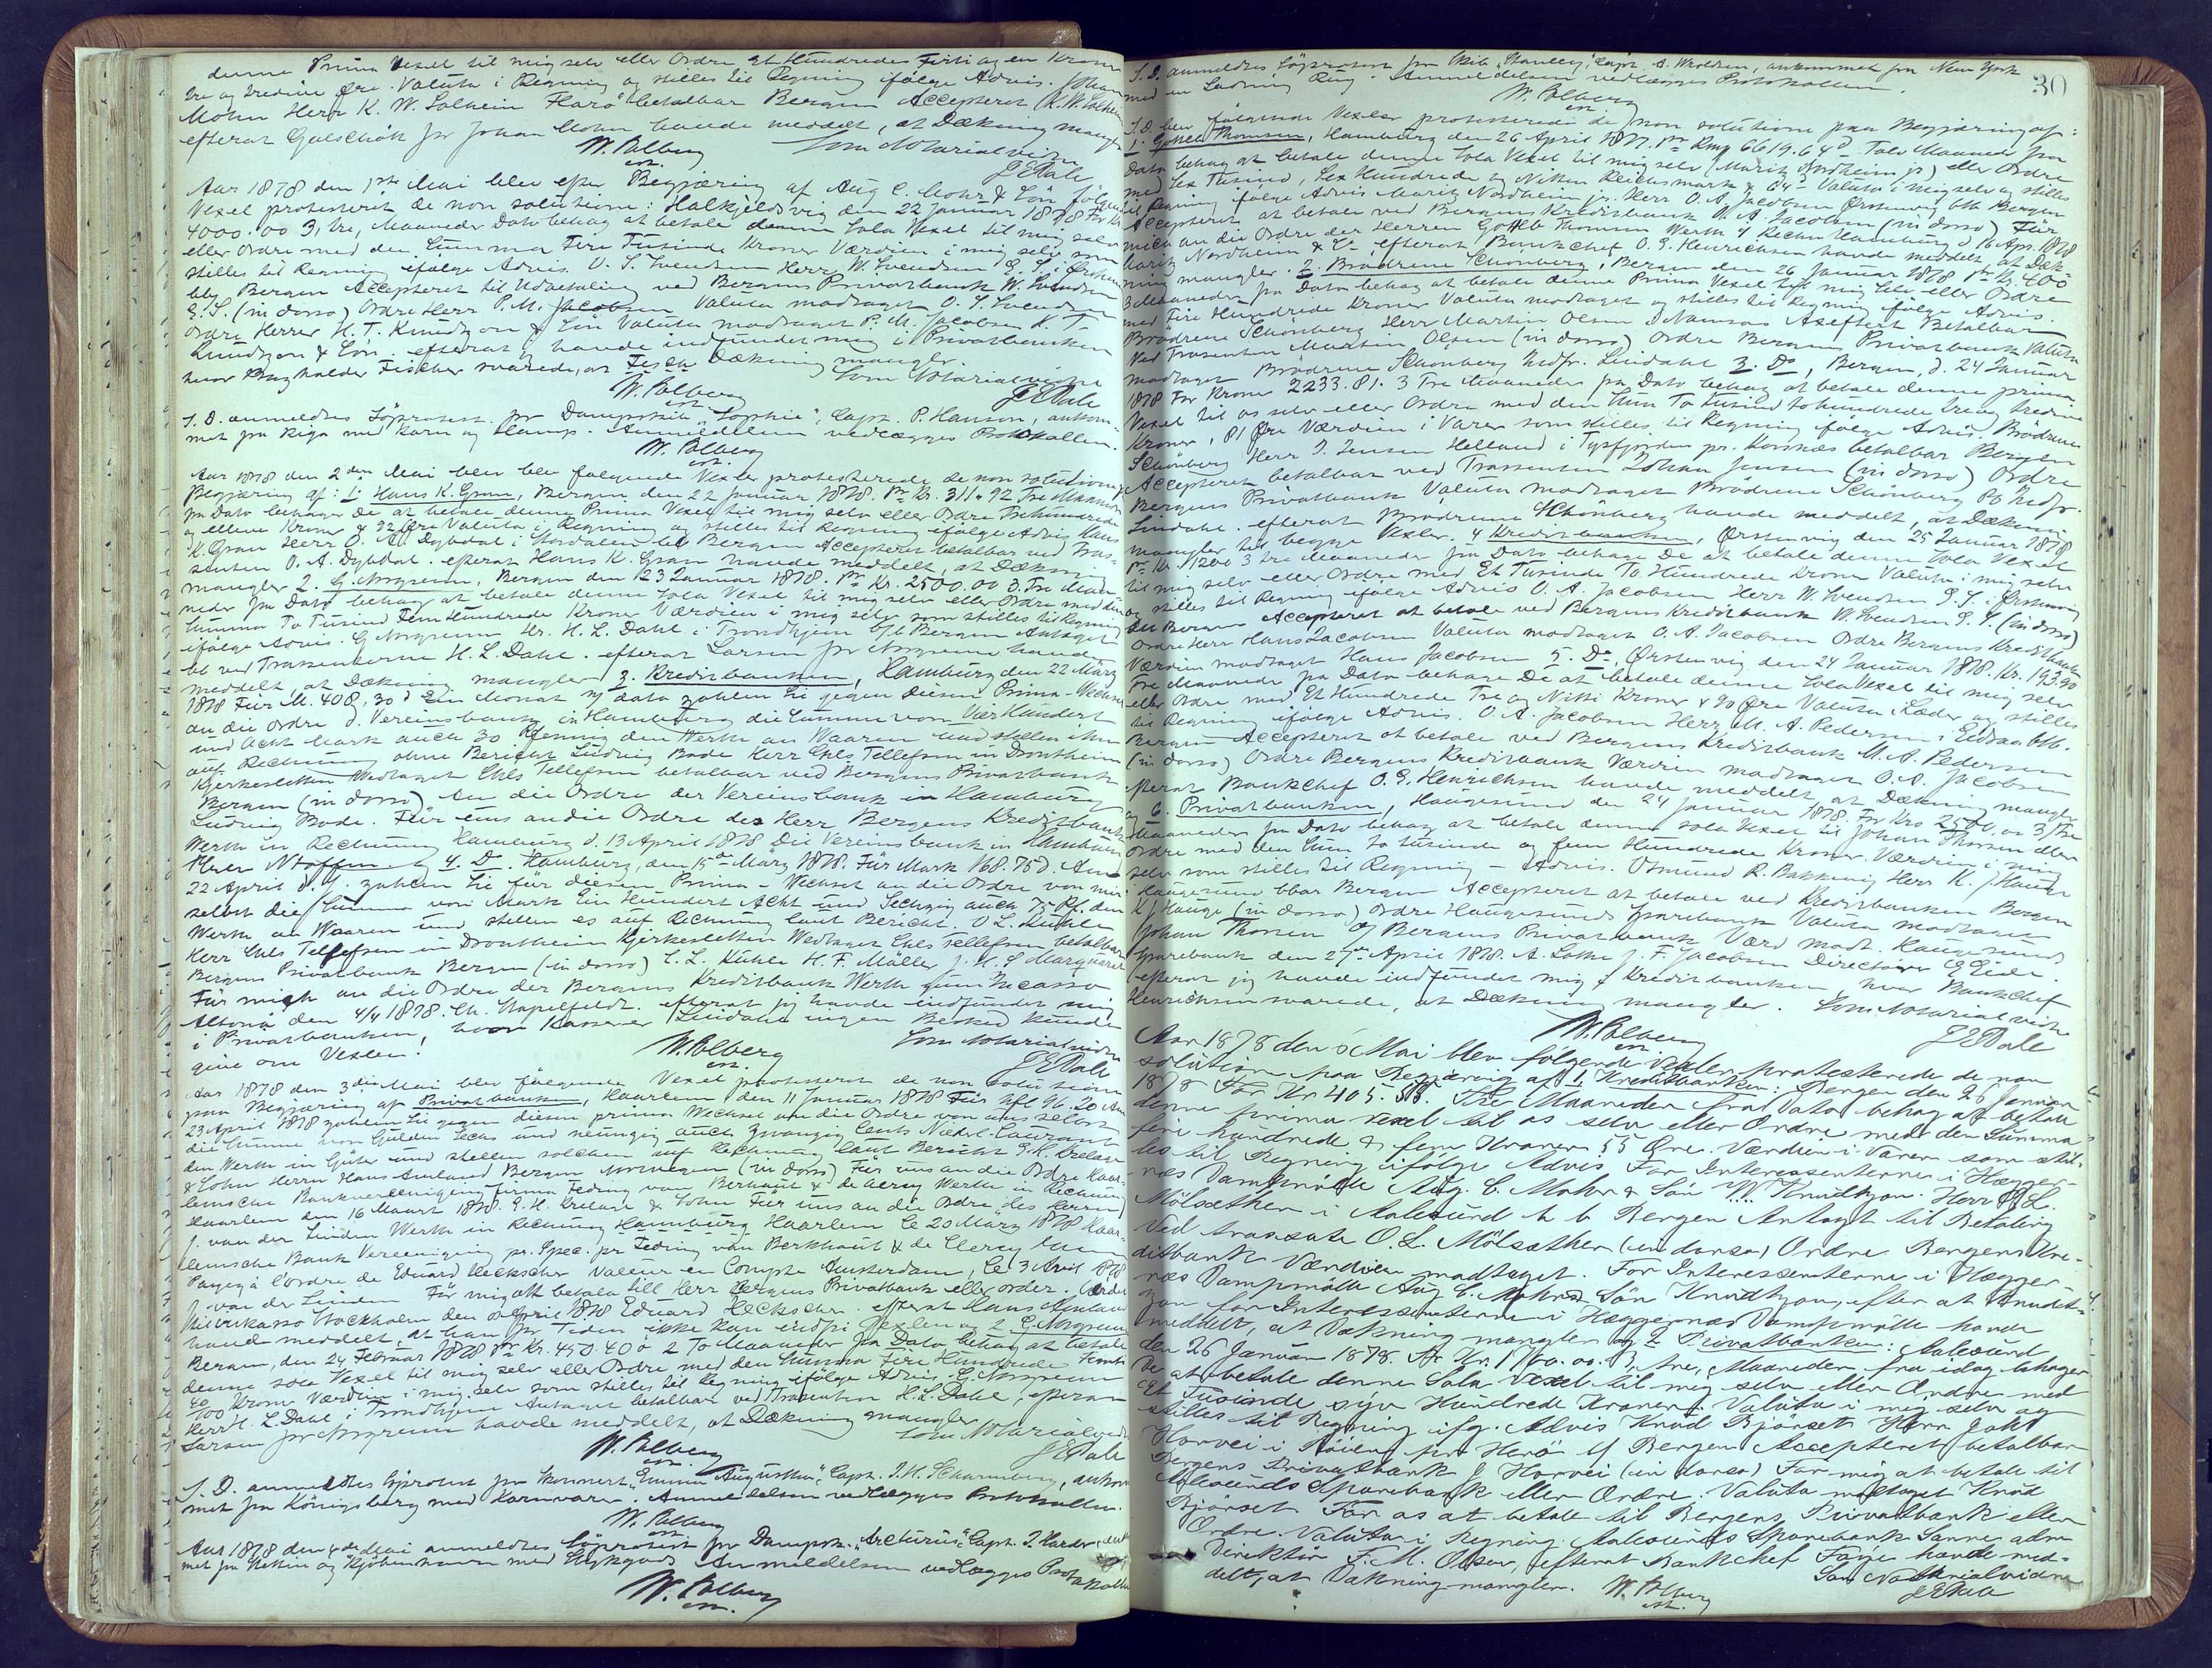 denne Prima Vexel til mig selv eller Ordre Et Hundrede Firti og en Kroner
tre og tredive Øre. Valuta i Regning og stilles til Regning ifølge Advis. Johan
Mohn Herr K. W. Solheim Florö betalbar Bergen Accepteret K. W. Solheim
efterat Galschöt for Johan Mohn havde meddelt, at Dækning mangler
W. Bolberg Som Notarialvidne
est. J E Dale
Aar 1878 den 1ste Mai blev efter Begjæring af Aug C. Mohr & Sön følgende
Vexel protesteret de non solutione: Halkjeldsvig den 22 Januar 1878 For Kr.
4000.00 3, tre, Maaneder Dato behag at betale denne Sola Vexel til mig selv
eller Ordre med den Summa Fire Tusinde Kroner Værdien i mig selv som
stilles til Regning ifølge Advis. O. S. Svendsen Herr W. Svendsen E. S. i Ørsten
bb. Bergen Accepteret til Udbetaling ved Bergens Privatbank W. Svendsen
E. S. (in dosso) Ordre Herr P. M. Jacobsen Valuta modtaget O. S. Svendsen
Ordre Herrer H. T. Knudtzon & Sön Valuta modtaget P. M. Jacobsen K. T.
Knudtzon & Sön. efterat jeg havde indfundet mig i Privatbanken
hvor Bogholder Fischer svarede, at Dækning mangler.
W. Bolberg Som Notarialvidne
est. J E Dale
S. D. anmeldtes Söprotest for Dampskib "Sophie", Capt. P. Hansen, ankom-
met fra Riga med Korn og Hamp. Anmeldelsen vedlægges Protokollen.
W. Bolberg
est.
Aar 1878 den 2den Mai blev følgende Vexler protesterede de non solutione
Begjæring af: 1. Hans K. Gran, Bergen, den 22 Januar 1878. Pr Kr. 311.92 Tre Maaneder
fra Dato behager De at betale denne Prima Vexel til mig selv eller Ordre Trehundrede
og elleve Kroner & 92 Øre Valuta i Regning og stilles til Regning ifølge Advis Hans
K. Gran Herr O. A. Dybdal i Stordalen bb Bergen Accepteret betalbar ved Tras-
senten O. A. Dybdal. efterat Hans K. Gran havde meddelt, at Dækning
mangler 2. G. Norgreen, Bergen den 23 Januar 1878. Pr Kr. 2500.00 3. Tre Maa-
neder fra Dato behag at betale denne Sola Vexel til mig selv eller Ordre med den
Summa To Tusind Fem Hundrede Kroner Værdien i mig selv som stilles til Regning
ifølge Advis. G Norgreen Hr. H. L. Dahl i Trondhjem b/b Bergen Antaget
bt ved Trassenterne H. L. Dahl. efterat Larsen for Norgreen havde
meddelt, at Dækning mangler 3. Kreditbanken, Hamburg den 22 März
1878 Für M. 408,30 d Ein Monat n/ dato zahlen Sie gegen diesen Prima-Wechsel
an die Ordre d. Vereinsbank in Hamburg die Summe von Vier Hundert
und Acht Mark auch 30 Pfennig den Werth an Waaren und stellen ihn
auf Rechnung ohne Bericht Ludwig Bode Herr Chls Tellefsen in Drontheim
Kjerkesletten Wedtaget Chls Tellefsen betalbar ved Bergens Privatbank
Bergen (in dosso) An die Ordre der Vereinsbank in Hamburg
Ludwig Bode. Für uns an die Ordre des Herr Bergens Kreditbank
Werth in Rechnung Hamburg d. 13 April 1878 Die Vereinsbank in Hamburg
og 4. Do Hamburg, den 15en März 1878. Für Mark 168.75 d. Am
22 April d. J. zahlen Sie für diesen Prima-Wechsel an die Ordre von mir
selbst die Summe von Mark Ein Hundert Acht und Sechzig auch 75 Pf. den
Werth an Waaren und stellen es auf Rechnung laut Bericht. O L. Kühle
Herr Chls Tellefsen in Drontheim Kjerkesletten Wedtaget Chls Tellefsen betalbar
Bergens Privatbank Bergen (in dosso) L. L. Kühle H. F. Müller J. H. S Marquard
Für mich an die Ordre der Bergens Kreditbank Werth zum Incasso
Altona den 4/4 1878. Ch. Stapelfeldt. efterat jeg havde indfundet mig
i Privatbanken, hvor Kasserer Lindahl ingen Besked kunde
give om Vexlen.
W. Bolberg Som Notarialvidne
est. J E Dale
Aar 1878 den 3die Mai blev følgende Vexel protesteret de non solutione
paa Begjæring af Privatbanken, Haarlem den 11 Januar 1878 Für Hfl 96.20 Am
23 April 1878 zahlen Sie gegen diesen prima Wechsel an die Ordre von uns selbst
die Summe von Gulden Sechs und neunzig auch zwanzig Cents Niederl. Courant
den Werth in Güter und stellen solchen auf Rechnung laut Bericht E. H. Krelage
& Sohn Herrn Hans Amland Bergen Norwegen (in dosso) Für uns an die Ordre Haar-
lemsche Bankvereeniging firma Feding van Berkhout & de Clercq Werth in Rechnung
Haarlem den 16 Maart 1878. E. H. Krelage & Sohn Für uns an die Ordre des Herren
J. van der Linden Werth in Rechnung Hamburg Haarlem le 20 März 1878 Haar-
lemsche Bank Vereeniging pr. Spec. pr Feding van Berkhout & de Clercq
Payez à l'ordre de Eduard Heckscher Valeur en Compte Amsterdam, le 3 Avril 1878
J. van der Linden För mig att betala till Herr Bergens Privatbank eller order.
till inkasso Stockholm den April 1878 Eduard Heckscher. efterat Hans Amland
havde meddelt, at han for Tiden ikke kan indfri Vexlen og 2 G. Norgreen
Bergen, den 24 Februar 1878 Pr Kr. 450.40 2 To Maaneder fra Dato behag at betale
denne sola Vexel til mig selv eller Ordre med den Summa Fire Hundrede Femti
40/100 Kroner Værdien i mig selv som stilles til Regning ifølge Advis G. Norgreen
Herr H. L. Dahl i Trondhjem Antaget betalbar ved Trassenten H. L. Dahl, efterat
Larsen for Norgreen havde meddelt, at Dækning mangler
W. Bolberg Som Notarialvidne
est. J E Dale
S. D. anmeldtes Söprotest for Skonnert "Emma Augustha", Capt. J. H. Schaumberg, ankom-
met fra Königsberg med Kornvarer. Anmeldelsen vedlægges Protokollen.
W. Bolberg
est.
Aar 1878 den 4de Mai anmeldtes Söprotest for Dampsk. "Arcturus", Capt. J. Harder, ankom
met fra Stettin og Kjöbenhavn med Stykgods Anmeldelsen vedlægges Protokollen
W. Bolberg
est.
30
S. D. anmeldtes Söprotest for Skib "Stanley", Capt. A. Wroldsen, ankommet fra New York
med en Ladning Rug. Anmeldelsen vedlægges Protokollen.
W. Bolberg
est.
S. D. blev følgende Vexler protesterede de non solutione paa Begjæring af:
1. Gottlieb Thomsen, Hamburg den 26 April 1877. Pr Rmg 6619.64 d. Tolv Maaneder fra
Dato behag at betale denne Sola Vexel til mig selv (Moritz Nordheim jr) eller Ordre
med Sex Tusind, Sex Hundrede og Nitten Reichsmark & 64 d Valuta i mig selv og stilles
til Regning ifølge Advis Moritz Nordheim jr. Herr O. A. Jacobsen Ørstenvig btb Bergen
Accepteret at betale ved Bergens Kreditbank O. A. Jacobsen (in dosso) Für
mich an die Ordre der Herren Gottlb Thomsen Werth i/ Rechn. Hamburg d 16 Apr. 1878
Moritz Nordheim & Co. efterat Bankchef O. E. Henrichsen havde meddelt, at Dæk-
ning mangler. 2. Brödrene Schönberg, Bergen den 26 Januar 1878 Pr Kr. 400
3 Maaneder fra Dato behag at betale denne Prima Vexel til mig selv eller Ordre
med Fire Hundrede Kroner Valuta modtaget og stilles til Regning ifølge Advis.
Brödrene Schönberg Herr Martin Olsen i Namsos Acseftert Betalbar
Ved Trasenten Martin Olsen (in dosso) Ordre Bergens Privatbank Valuta
modtaget Brödrene Schönberg Nedfr. Lindahl 3. Do, Bergen, d. 24 Januar
1878 For Kroner 2233.81. 3 Tre Maaneder fra Dato behag at betale denne prima
Vexel til os selv eller Ordre med den Sum To Tusind to hundrede tre og tredive
Kroner, 81 Øre Værdien i Varer som stilles til Regning følge Advis. Brödrene
Schönberg Herr J. Jensen Helland i Tysfjorden pr. Korsnæs betalbar Bergen
Accepteret betalbar ved Trassenten Johan Jensen (in dosso) Ordre
Bergens Privatbank Valuta modtaget Brödrene Schönberg Pp Nedfr.
Lindahl. efterat Brödrene Schönberg havde meddelt, at Dækning
mangler til begge Vexler. 4 Kreditbanken, Ørstenvig den 25 Januar 1878
Pr Kr. 1200 3 tre Maaneder fra Dato behage De at betale denne Sola Vexel
til mig selv eller Ordre med Et Tusinde To Hundrede Kroner Valuta i mig selv
og stilles til Regning ifølge Advis O. A. Jacobsen Herr W. Svendsen E. S. i Ørstenvig
btb Bergen Accepteret at betale ved Bergens Kreditbank W. Svendsen E. S. (in dosso)
Ordre Herr Hans Jacobsen Valuta modtaget O. A. Jacobsen Ordre Bergens Kreditbank
Værdien modtaget Hans Jacobsen 5. Do, Ørstenvig den 24 Januar 1878. Kr. 193.90
Tre Maaneder fra Dato behage De at betale denne Sola Vexel til mig selv
eller Ordre, med Et Hundrede Tre og Nitti Kroner & 90 Øre Valuta i Læder og stilles
til Regning ifølge Advis. O. A. Jacobsen Herr M. A. Pedersen i Eidsaa btb.
Bergen Accepteret at betale ved Bergens Kreditbank M. A. Pedersen
(in dosso) Ordre Bergens Kreditbank Værdien modtaget O. A. Jacobsen
efterat Bankchef O. E. Henrichsen havde meddelt at Dækning mangler
og 6. Privatbanken, Haugesund den 24 Januar 1878. For Kro 2500.00 3/Tre
Maaneder fra Dato behag at betale denne sola Vexel til Johan Thorsen eller
Ordre med den Sum To tusinde og fem Hundrede Kroner. Værdien i mig
selv som stilles til Regning – Advis. Osmund R. Bakkevig Herr K. J. Hauge
Haugesund bbar Bergen Accepteret at betale ved Kreditbanken Bergen
K J Hauge (in dosso) Ordre Haugesunds Sparebank Valuta modtaget
Johan Thorsen O/ Bergens Privatbank Værd modt. Haugesunds
Sparebank den 27de April 1878. A. Lothe J. F. Jacobsen Directörer E Eide
efterat jeg havde indfundet mig i Kreditbanken, hvor Bankchef
Henrichsen svarede, at Dækning mangler. Som Notarialvidne
W. Bolberg J E Dale
est.
Aar 1878 den 6 Mai blev følgende Vexler protesterede de non
solutione paa Begjæring af 1. Kreditbanken: Bergen den 26 Januar
1878 For Kr 405.55. Tre Maaneder fra Dato behag at betale
denne prima vexel til os selv eller Ordre med den Summa
fire hundrede & fem Kroner 55 Øre. Værdien i Varer som stil-
les til Regning ifølge Advis For Interessenterne i Hægger-
næs Dampmölle Aug. C. Mohr & Sön W. Knudtzon. Herr O. L.
Mölsæther i Aalesund b b Bergen Antagt til Betaling
ved trassate O. L. Mölsæther (in dorso) Ordre Bergens Kre-
ditbank Værdien modtaget. For Interessenterne i Hægger-
næs Dampmölle Aug C. Mohr & Sön Knudtzon, efter at Knudt-
zon for Interessenterne i Hæggernæs Dampmölle havde
meddelt, at Dækning mangler og 2 Privatbanken: Aalesund
den 26 Januar 1878. For Kr. 1700.00. 3, tre, Maaneder fra idag behager
De at betale denne Sola Vexel til mig selv eller Ordre med
Et Tusinde syv Hundrede Kroner. Valuta i mig selv og
stilles til Regning ifg. Advis Knud Bjørset Herr Jakt
Horvei i Röven pr Herö b/ Bergen Accepteret betalbar
Bergens Privatbank J. Horvei (in dorso) For mig at betale til
Aalesunds Sparebank eller Ordre. Valuta modtaget Knud
Bjørset For os at betale til Bergens Privatbank eller
Ordre. Valuta i Regning. Aalesunds Sparebank Sanne adm
Direktör F. M. Olsen, efterat Bankchef Faye havde med-
delt, at Dækning mangler. Som Notarialvidne
W. Bolberg J E Dale
est.